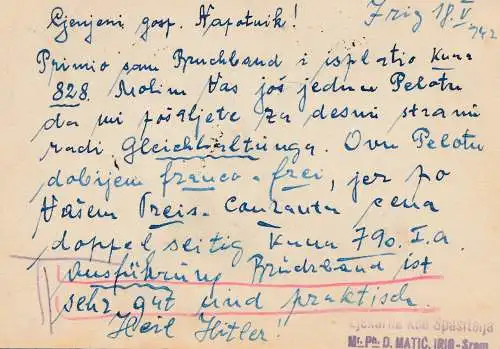 Cjenjeni gosp. Napotnik!
Irig 18.V 942
Primio sam Bruchband i isplatio Kuna
828. Molim Vas još jednu Pelotu
da mi pošaljete za desnu stranu
radi Gleichhaltunga. Ovu Pelotu
dobijem franco-frei, jer po
Vašem Preis-Couranta cena
doppelseitig Kuna 790. I.a.
Ausführung Bruchband ist
sehr gut und praktisch.
Heil Hitler!
Ljekarna Kod Spasitelja
Mr. Ph. D. MATIC, IRIG-Srem